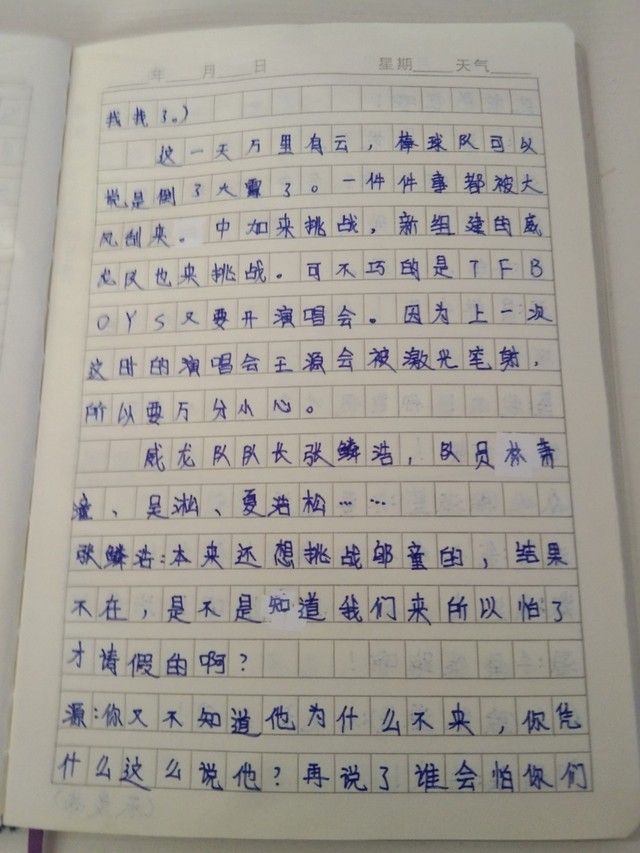 年 月 日 星期 天气
找我了。)
这一天万里有云，棒球队可以
说是倒了大霉了。一件件事都被大
风刮来。中加来挑战，新组建的威
龙队也来挑战。可不巧的是TFB
OYS又要开演唱会。因为上一次
这时的演唱会王源会被激光笔射，
所以要万分小心。
威龙队队长张鳞浩，队员林青
潼、吴淞、夏浩松……
张鳞浩:本来还想挑战邬童的，结果
不在，是不是知道我们来所以怕了
才请假的啊?
源:你又不知道他为什么不来，你凭
什么这么说他?再说了谁会怕你们